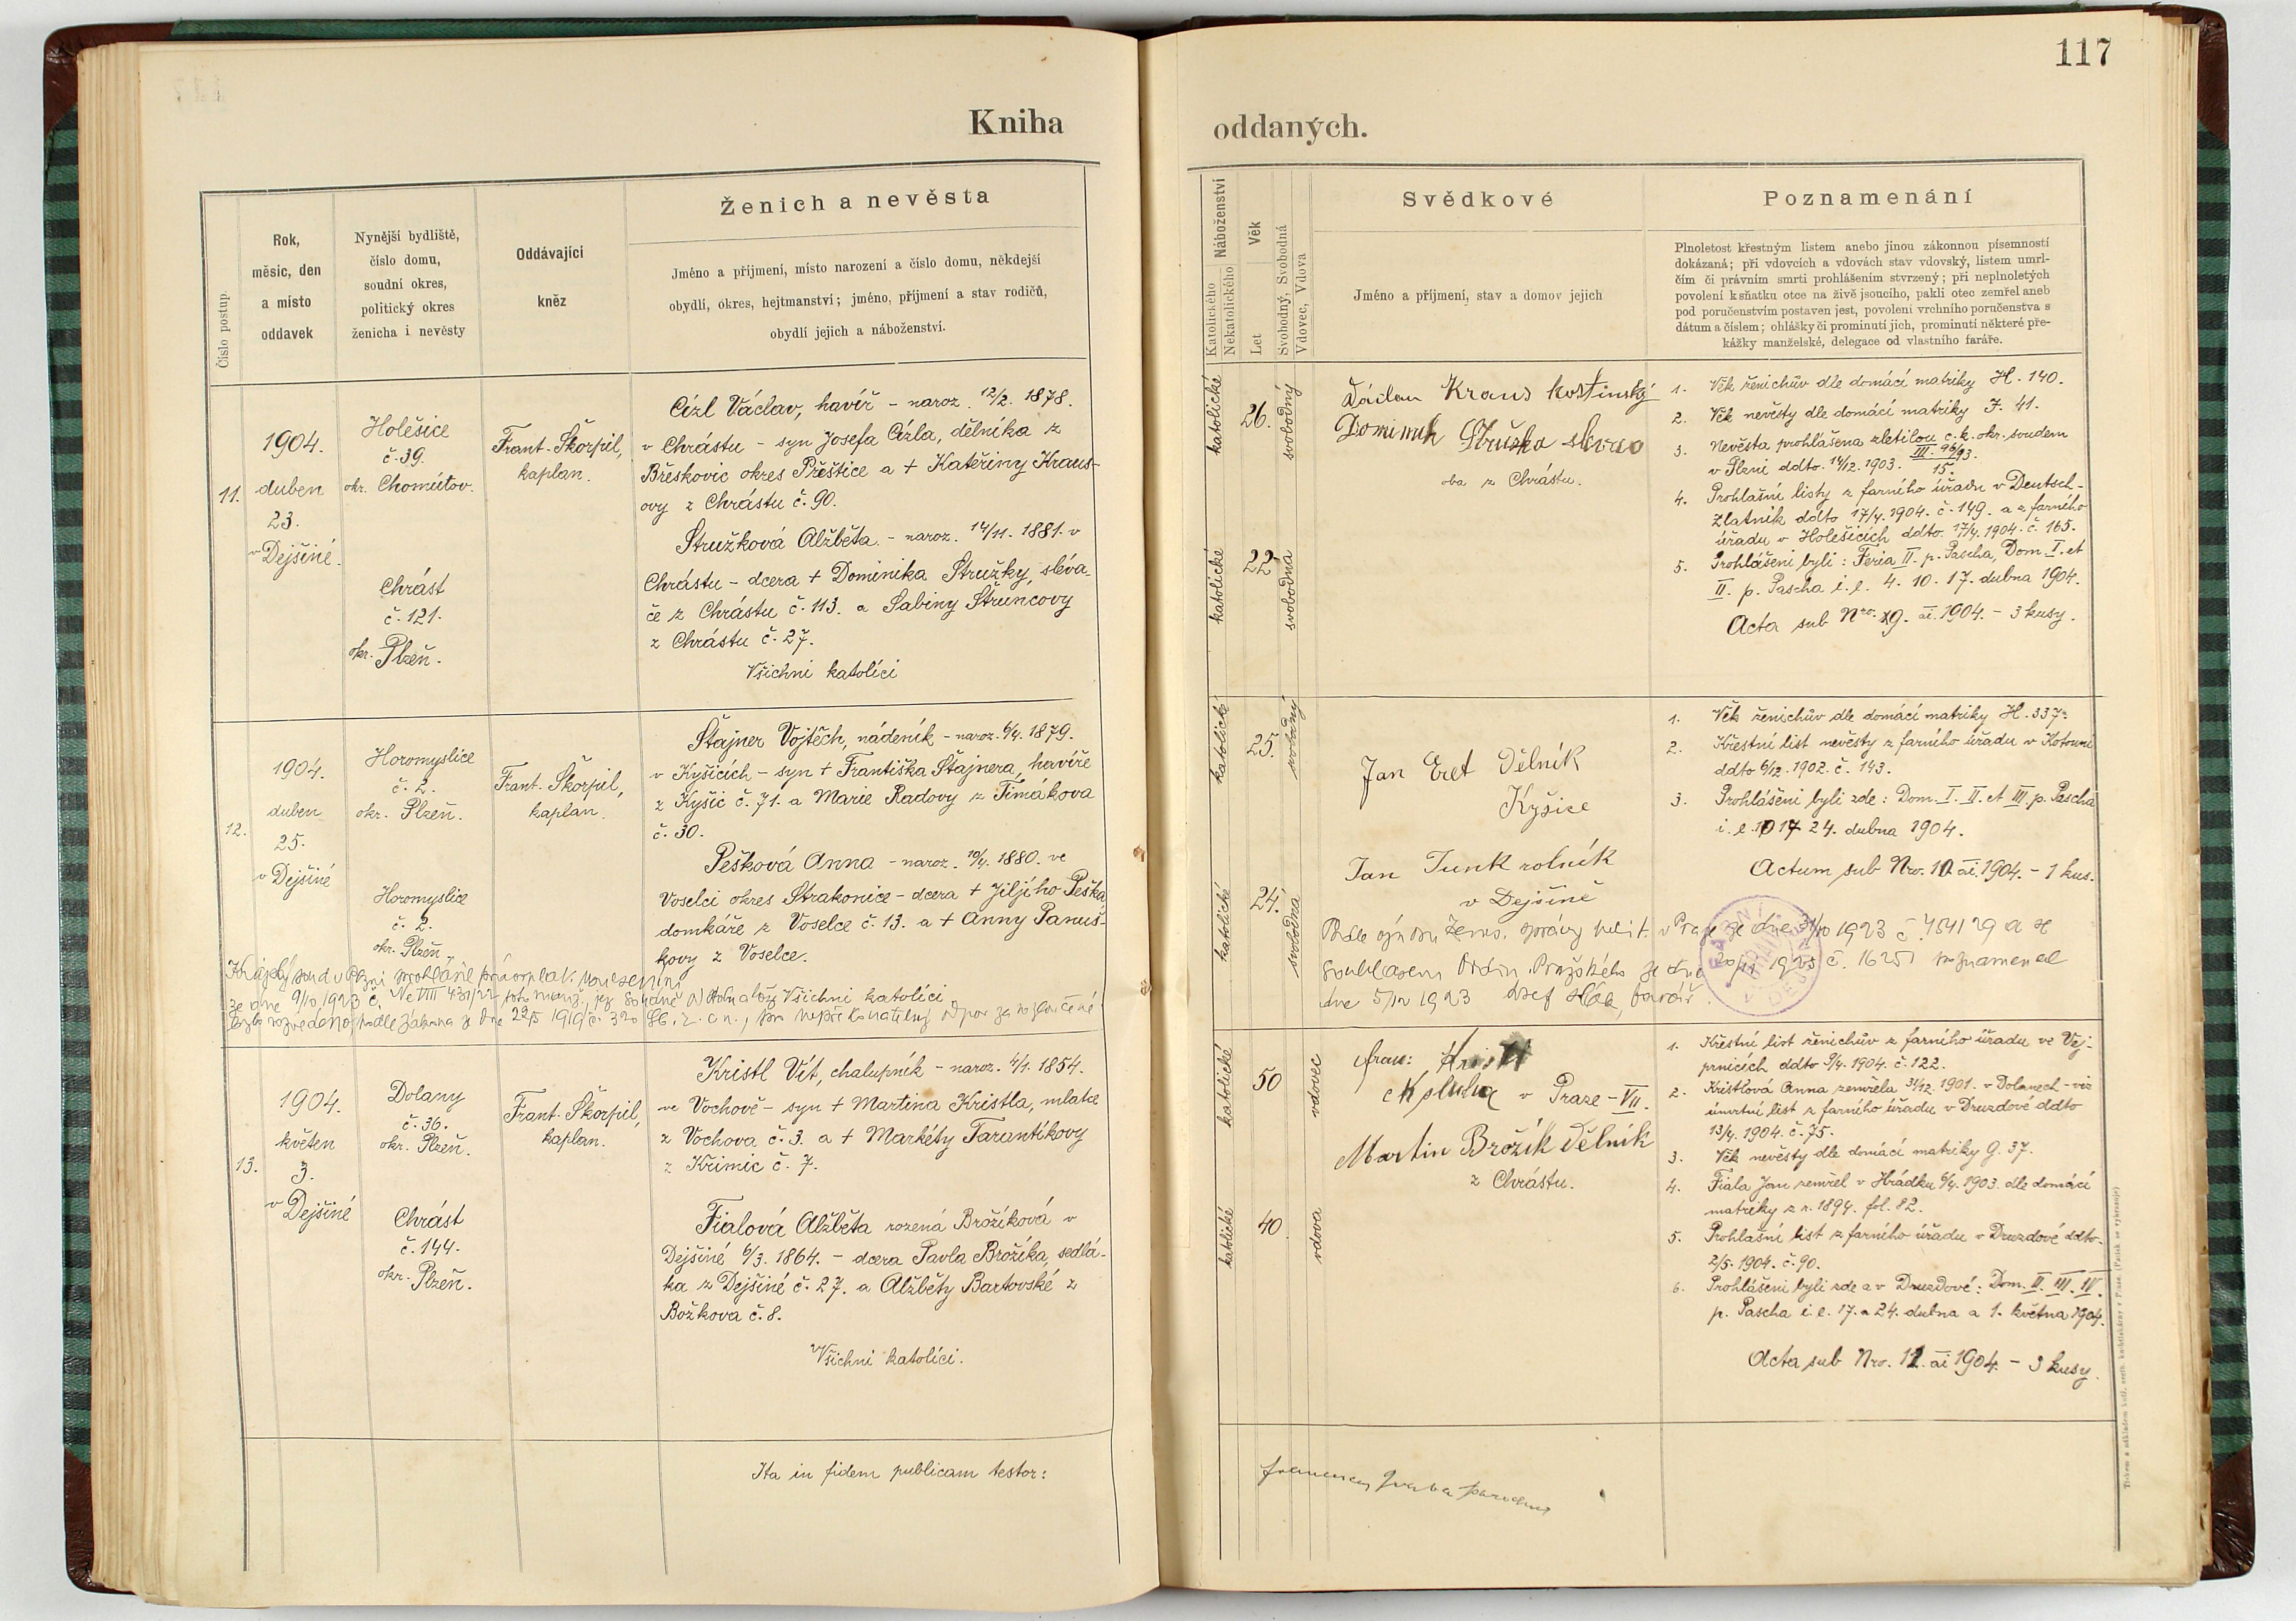 117
Kniha oddaných.
Číslo postup.
Rok,
měsíc, den
a místo
oddavek
Nynější bydliště,
číslo domu,
soudní okres,
politický okres
ženicha i nevěsty
Oddávající
kněz
Ženich a nevěsta
Jméno a příjmení, místo narození a číslo domu, někdejší
obydlí, okres, hejtmanství; jméno, příjmení a stav rodičů,
obydlí jejich a náboženství.
Náboženství
Katolického
Nekatolického
Věk
Let
Svobodný, Svobodná
Vdovec, Vdova
Svědkové
Jméno a příjmení, stav a domov jejich
Poznamenání
Plnoletost křestným listem anebo jinou zákonnou písemností
dokázaná; při vdovcích a vdovách stav vdovský, listem umrl-
čím či právním smrti prohlášením stvrzený; při neplnoletých
povolení k sňatku otce na živě jsoucího, pakli otec zemřel aneb
pod poručenstvím postaven jest, povolení vrchního poručenstva s
dátum a číslem; ohlášky či prominutí jich, prominutí některé pře-
kážky manželské, delegace od vlastního faráře.
11.
1904.
duben
23.
v Dejšině.
Holešice
č. 39.
okr. Chomútov.
Chrást
č. 121.
okr. Plzeň.
Frant. Škorpil,
kaplan.
Cízl Václav, havíř – naroz. 12/2. 1878.
v Chrástu – syn Josefa Cízla, dělníka z
Břeskovic okres Přeštice a + Kateřiny Kraus-
ovy z Chrástu č. 90.
Stružková Alžběta – naroz. 14/11. 1881. v
Chrástu – dcera + Dominika Stružky, sléva-
če z Chrástu č. 113. a Sabiny Štruncovy
z Chrástu č. 27.
Všichni katolíci
katolické
26.
svobodný
katolické
22
svobodna
Václav Kraus hostinský
Dominik Stružka
oba z Chrástu.
1. Věk ženichův dle domácí matriky H. 140.
2. Věk nevěsty dle domácí matriky J. 41.
3. Nevěsta prohlášena zletilou c. k. okr. soudem
v Plzni ddto. 14/12. 1903.
4. Prohlašní listy z farního úřadu v Deutsch-
Zlatník ddto 17/4. 1904. č. 149. a z farního
úřadu v Holešicích ddto. 17/4. 1904. č. 165.
5. Prohlášeni byli: Feria II. p. Pascha, Dom. I. et
II. p. Pascha i. e. 4. 10. 17. dubna 1904.
Acta sub Nro. 9. ai. 1904. – 3 kusy.
12.
1904.
duben
25.
v Dejšině
Horomyslice
č. 2.
okr. Plzeň.
Horomyslice
č. 2.
okr. Plzeň.
Frant. Škorpil,
kaplan.
Štajner Vojtěch, nádeník – naroz. 6/4. 1879.
v Kyšicích – syn + Františka Štajnera, havíře
z Kyšic č. 71. a Marie Radovy z Timákova
č. 30.
Pešková Anna – naroz. 10/4. 1880. ve
Voselci okres Strakonice – dcera + Jiljího Peška,
domkáře z Voselce č. 13. a + Anny Panuš-
kovy z Voselce.
Všichni katolíci
Krajský soud v Plzni prohlásil
ze dne 9/10 1923 č.
podle zákona z dne 22/5 1919 č. 320 Sb. z. a n., pro nepřekonatelný odpor za rozloučené
katolické
25.
svobodný
katolické
24.
svobodna
Jan Eret Dělník
Kyšice
Jan Tunk rolník
v Dejšině
1. Věk ženichův dle domácí matriky H. 337.
2. Křestní list nevěsty z farního úřadu v Kotouni
ddto 6/12. 1902. č. 143.
3. Prohlášeni byli zde: Dom. I. II. et III. p. Pascha
i. e. 10 17 24. dubna 1904.
Actum sub Nro. 10 ai. 1904. – 1 kus.
Podle výnosu zems. správy polit. v Praze ze dne 31/10 1923 č. 454129 a se
souhlasem Ordin. Pražského ze dne 1923 č. 16251 poznamenal
dne 5/12 1923 Josef farář.
13.
1904.
květen
3.
v Dejšině
Dolany
č. 36.
okr. Plzeň.
Chrást
č. 144.
okr. Plzeň.
Frant. Škorpil,
kaplan.
Kristl Vít, chalupník – naroz. 4/1. 1854.
ve Vochově – syn + Martina Kristla, mlatce
z Vochova č. 3. a + Markéty Tarantíkovy
z Křimic č. 7.
Fialová Alžběta rozená Brožíková v
Dejšině 6/3. 1864. – dcera Pavla Brožíka, sedlá-
ka z Dejšině č. 27. a Alžběty Bartovské z
Božkova č. 8.
Všichni katolíci.
katolické
50
vdovec
katolické
40
vdova
Fran: Kristl
sluha v Praze – VII.
Martin Brožík Dělník
z Chrástu.
1. Křestní list ženichův z farního úřadu ve Vej-
prnicích ddto 9/4. 1904. č. 122.
2. Kristlová Anna zemřela 31/12. 1901. v Dolanech – viz
úmrtní list z farního úřadu v Druzdově ddto
13/4. 1904. č. 75.
3. Věk nevěsty dle domácí matriky G. 37.
4. Fiala Jan zemřel v Hrádku 6/4. 1903. dle domácí
matriky z r. 1894. fol. 82.
5. Prohlašní list z farního úřadu v Druzdově ddto.
2/5. 1904. č. 90.
6. Prohlášeni byli zde a v Druzdově: Dom. II. III. IV.
p. Pascha i. e. 17. a 24. dubna a 1. května 1904.
Acta sub Nro. 12. ai 1904. – 3 kusy.
Ita in fidem publicam testor:
parochus